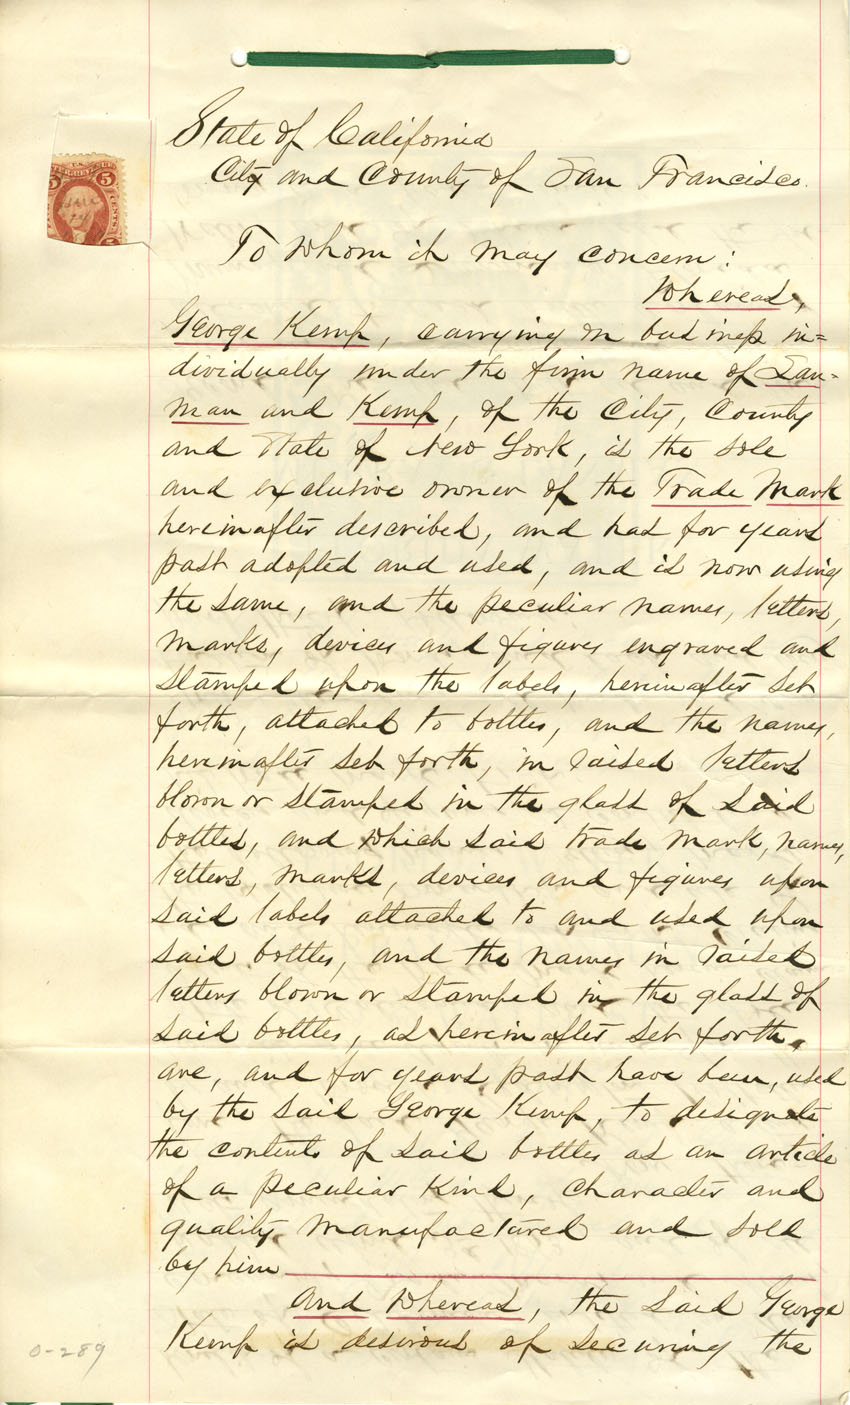 State of California
City and County of San Francisco.
To whom it may concern:
Whereas,
George Kemp, carrying on business in=
dividually under the firm name of Lan-
man and Kemp, of the City, County
and State of New York, is the sole
and exclusive owner of the Trade Mark
hereinafter described, and has for years
past adopted and used, and is now using
the same, and the peculiar names, letters,
marks, devices and figures engraved and
stamped upon the labels, hereinafter set
forth, attached to bottles, and the names,
hereinafter set forth, in raised letters
blown or stamped in the glass of said
bottles, and which said trade mark, names,
letters, marks, devices and figures upon
said labels attached to and used upon
said bottles, and the names in raised
letters blown or stamped in the glass of
said bottles, as hereinafter set forth,
are, and for years past have been, used
by the said George Kemp, to designate
the contents of said bottles as an article
of a peculiar kind, character and
quality manufactured and sold
by him
And Whereas, the said George
Kemp is desirous of securing the
0-289
5 5
CENTS